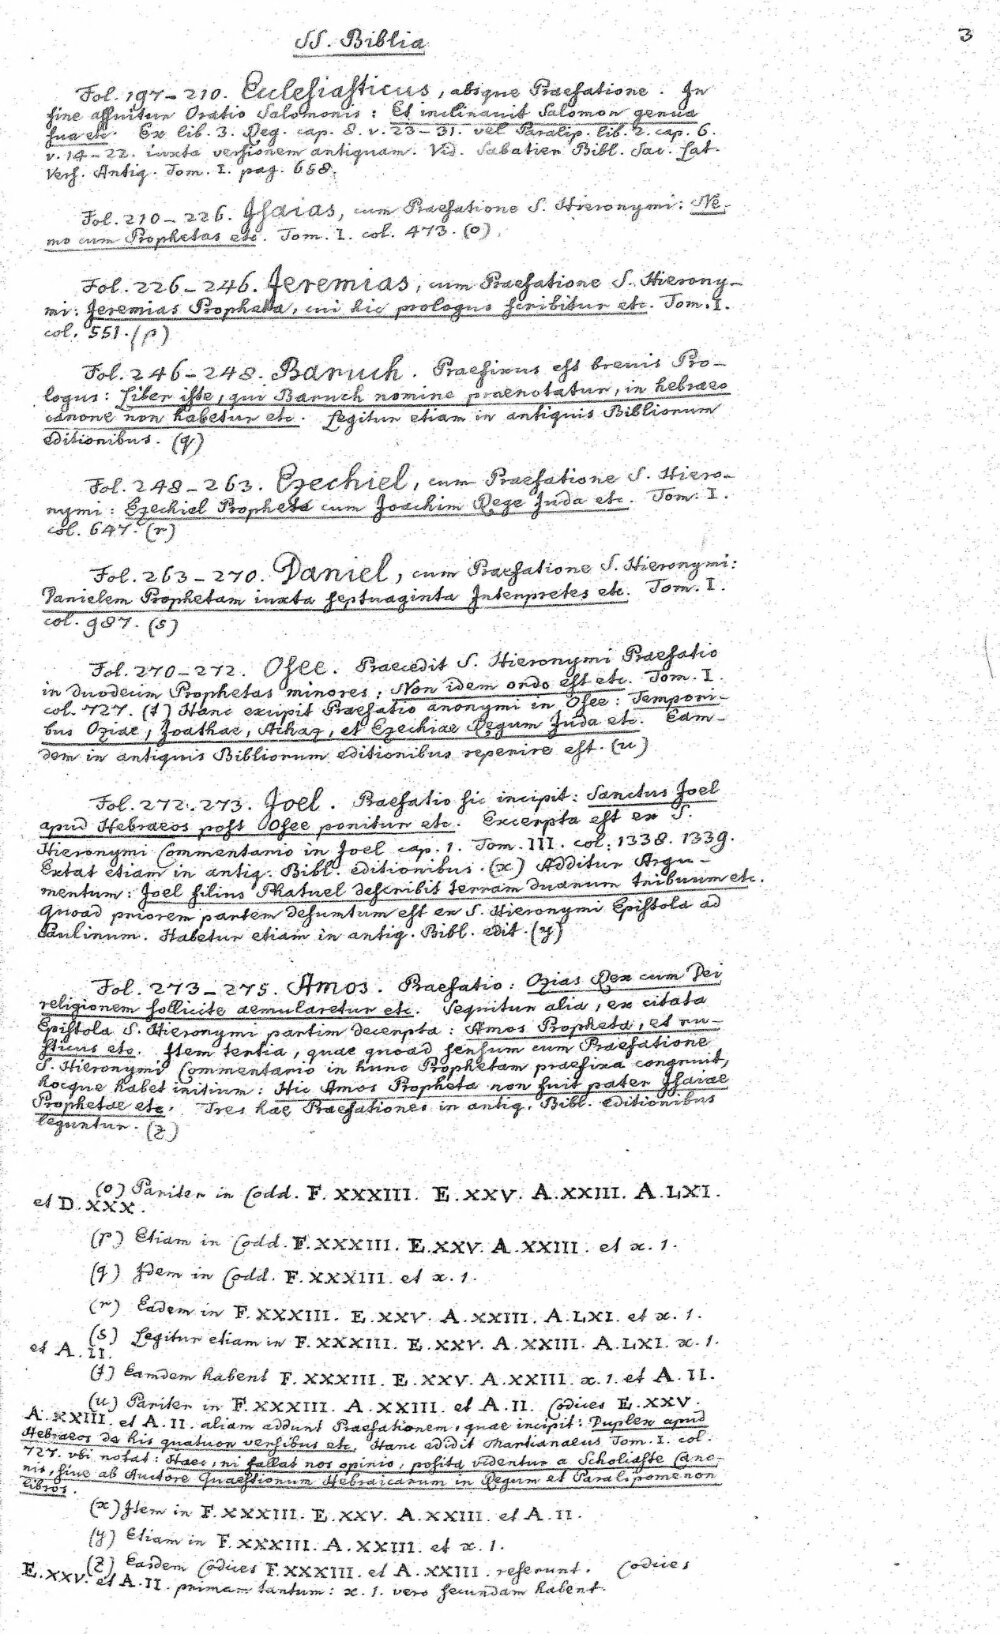 SS. Biblia
3
Fol. 197–210. Ecclesiasticus, absque Praefatione. In
fine assuitur Oratio Salomonis: Et inclinauit Salomon genua
sua etc. Ex lib. 3. Reg. cap. 8. v. 23–31. vel Paralip. lib. 2. cap. 6.
v. 14–22. iuxta versionem antiquam. Vid. Sabatier Bibl. Sac. Lat.
Vers. Antiq. Tom. I. pag. 658.
Fol. 210–226. Isaias, cum Praefatione S. Hieronymi: Ne-
mo cum Prophetas etc. Tom. I. col. 473. (o)
Fol. 226–246. Jeremias, cum Praefatione S. Hierony-
mi: Jeremias Propheta, cui hic prologus scribitur etc. Tom. I.
col. 551. (p)
Fol. 246–248. Baruch. Praefixus est brevis Pro-
logus: Liber iste, qui Baruch nomine praenotatur, in hebraeo
canone non habetur etc. Legitur etiam in antiquis Bibliorum
editionibus. (q)
Fol. 248–263. Ezechiel, cum Praefatione S. Hiero-
nymi: Ezechiel Propheta cum Joachim Rege Juda etc. Tom. I.
col. 647. (r)
Fol. 263–270. Daniel, cum Praefatione S. Hieronymi:
Danielem Prophetam iuxta septuaginta Interpretes etc. Tom. I.
col. 987. (s)
Fol. 270–272. Osee. Praecedit S. Hieronymi Praefatio
in duodecim Prophetas minores: Non idem ordo est etc. Tom. I.
col. 727. (t) Hanc excipit Praefatio anonymi in Osee: Tempori-
bus Oziae, Joathae, Achaz, et Ezechiae Regum Juda etc. Eam-
dem in antiquis Bibliorum editionibus reperire est. (u)
Fol. 272. 273. Joel. Praefatio sic incipit: Sanctus Joel
apud Hebraeos post Osee ponitur etc. Excerpta est ex S.
Hieronymi Commentario in Joel cap. 1. Tom. III. col. 1338. 1339.
Extat etiam in antiq. Bibl. editionibus. (x) Additur Argu-
mentum: Joel filius Phatuel describit terram duarum tribuum etc.
quoad priorem partem desumtum est ex S. Hieronymi Epistola ad
Paulinum. Habetur etiam in antiq. Bibl. edit. (y)
Fol. 273–275. Amos. Praefatio: Ozias Rex cum Dei
religionem sollicite aemularetur etc. Sequitur alia, ex citata
Epistola S. Hieronymi partim decerpta: Amos Propheta, et ru-
sticus etc. Item tertia, quae quoad sensum cum Praefatione
S. Hieronymi Commentario in hunc Prophetam praefixa congruit,
hocque habet initium: Hic Amos Propheta non fuit pater Isaiae
Prophetae etc. Tres hae Praefationes in antiq. Bibl. editionibus
leguntur. (z)
(o) Pariter in Codd. F. XXXIII. E. XXV. A. XXIII. A. LXI.
et D. XXX.
(p) Etiam in Codd. F. XXXIII. E. XXV. A. XXIII. et x. 1.
(q) Idem in Codd. F. XXXIII. et x. 1.
(r) Eadem in F. XXXIII. E. XXV. A. XXIII. A. LXI. et x. 1.
(s) Legitur etiam in F. XXXIII. E. XXV. A. XXIII. A. LXI. x. 1.
et A. II.
(t) Eamdem habent F. XXXIII. E. XXV. A. XXIII. x. 1. et A. II.
(u) Pariter in F. XXXIII. A. XXIII. et A. II. Codices E. XXV.
A. XXIII. et A. II. aliam addunt Praefationem, quae incipit: Duplex apud
Hebraeos de his quatuor versibus etc. Hanc edidit Martianaeus Tom. I. col.
727. vbi notat: Haec, ni fallat nos opinio, posita videntur a Scholiaste Cano-
nis, sive ab Auctore Quaestionum Hebraicarum in Regum et Paralipomenon
libros.
(x) Item in F. XXXIII. E. XXV. A. XXIII. et A. II.
(y) Etiam in F. XXXIII. A. XXIII. et x. 1.
(z) Easdem Codices F. XXXIII. et A. XXIII. referunt. Codices
E. XXV. et A. II. primam tantum: x. 1. vero secundam habent.